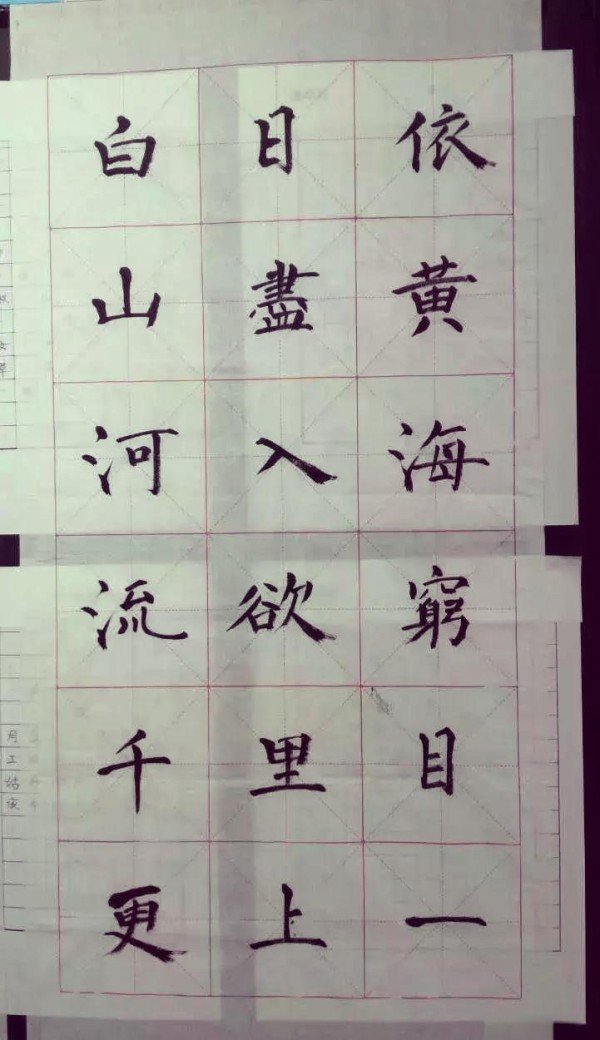 白日依
山盡黄
河入海
流欲窮
千里目
更上一